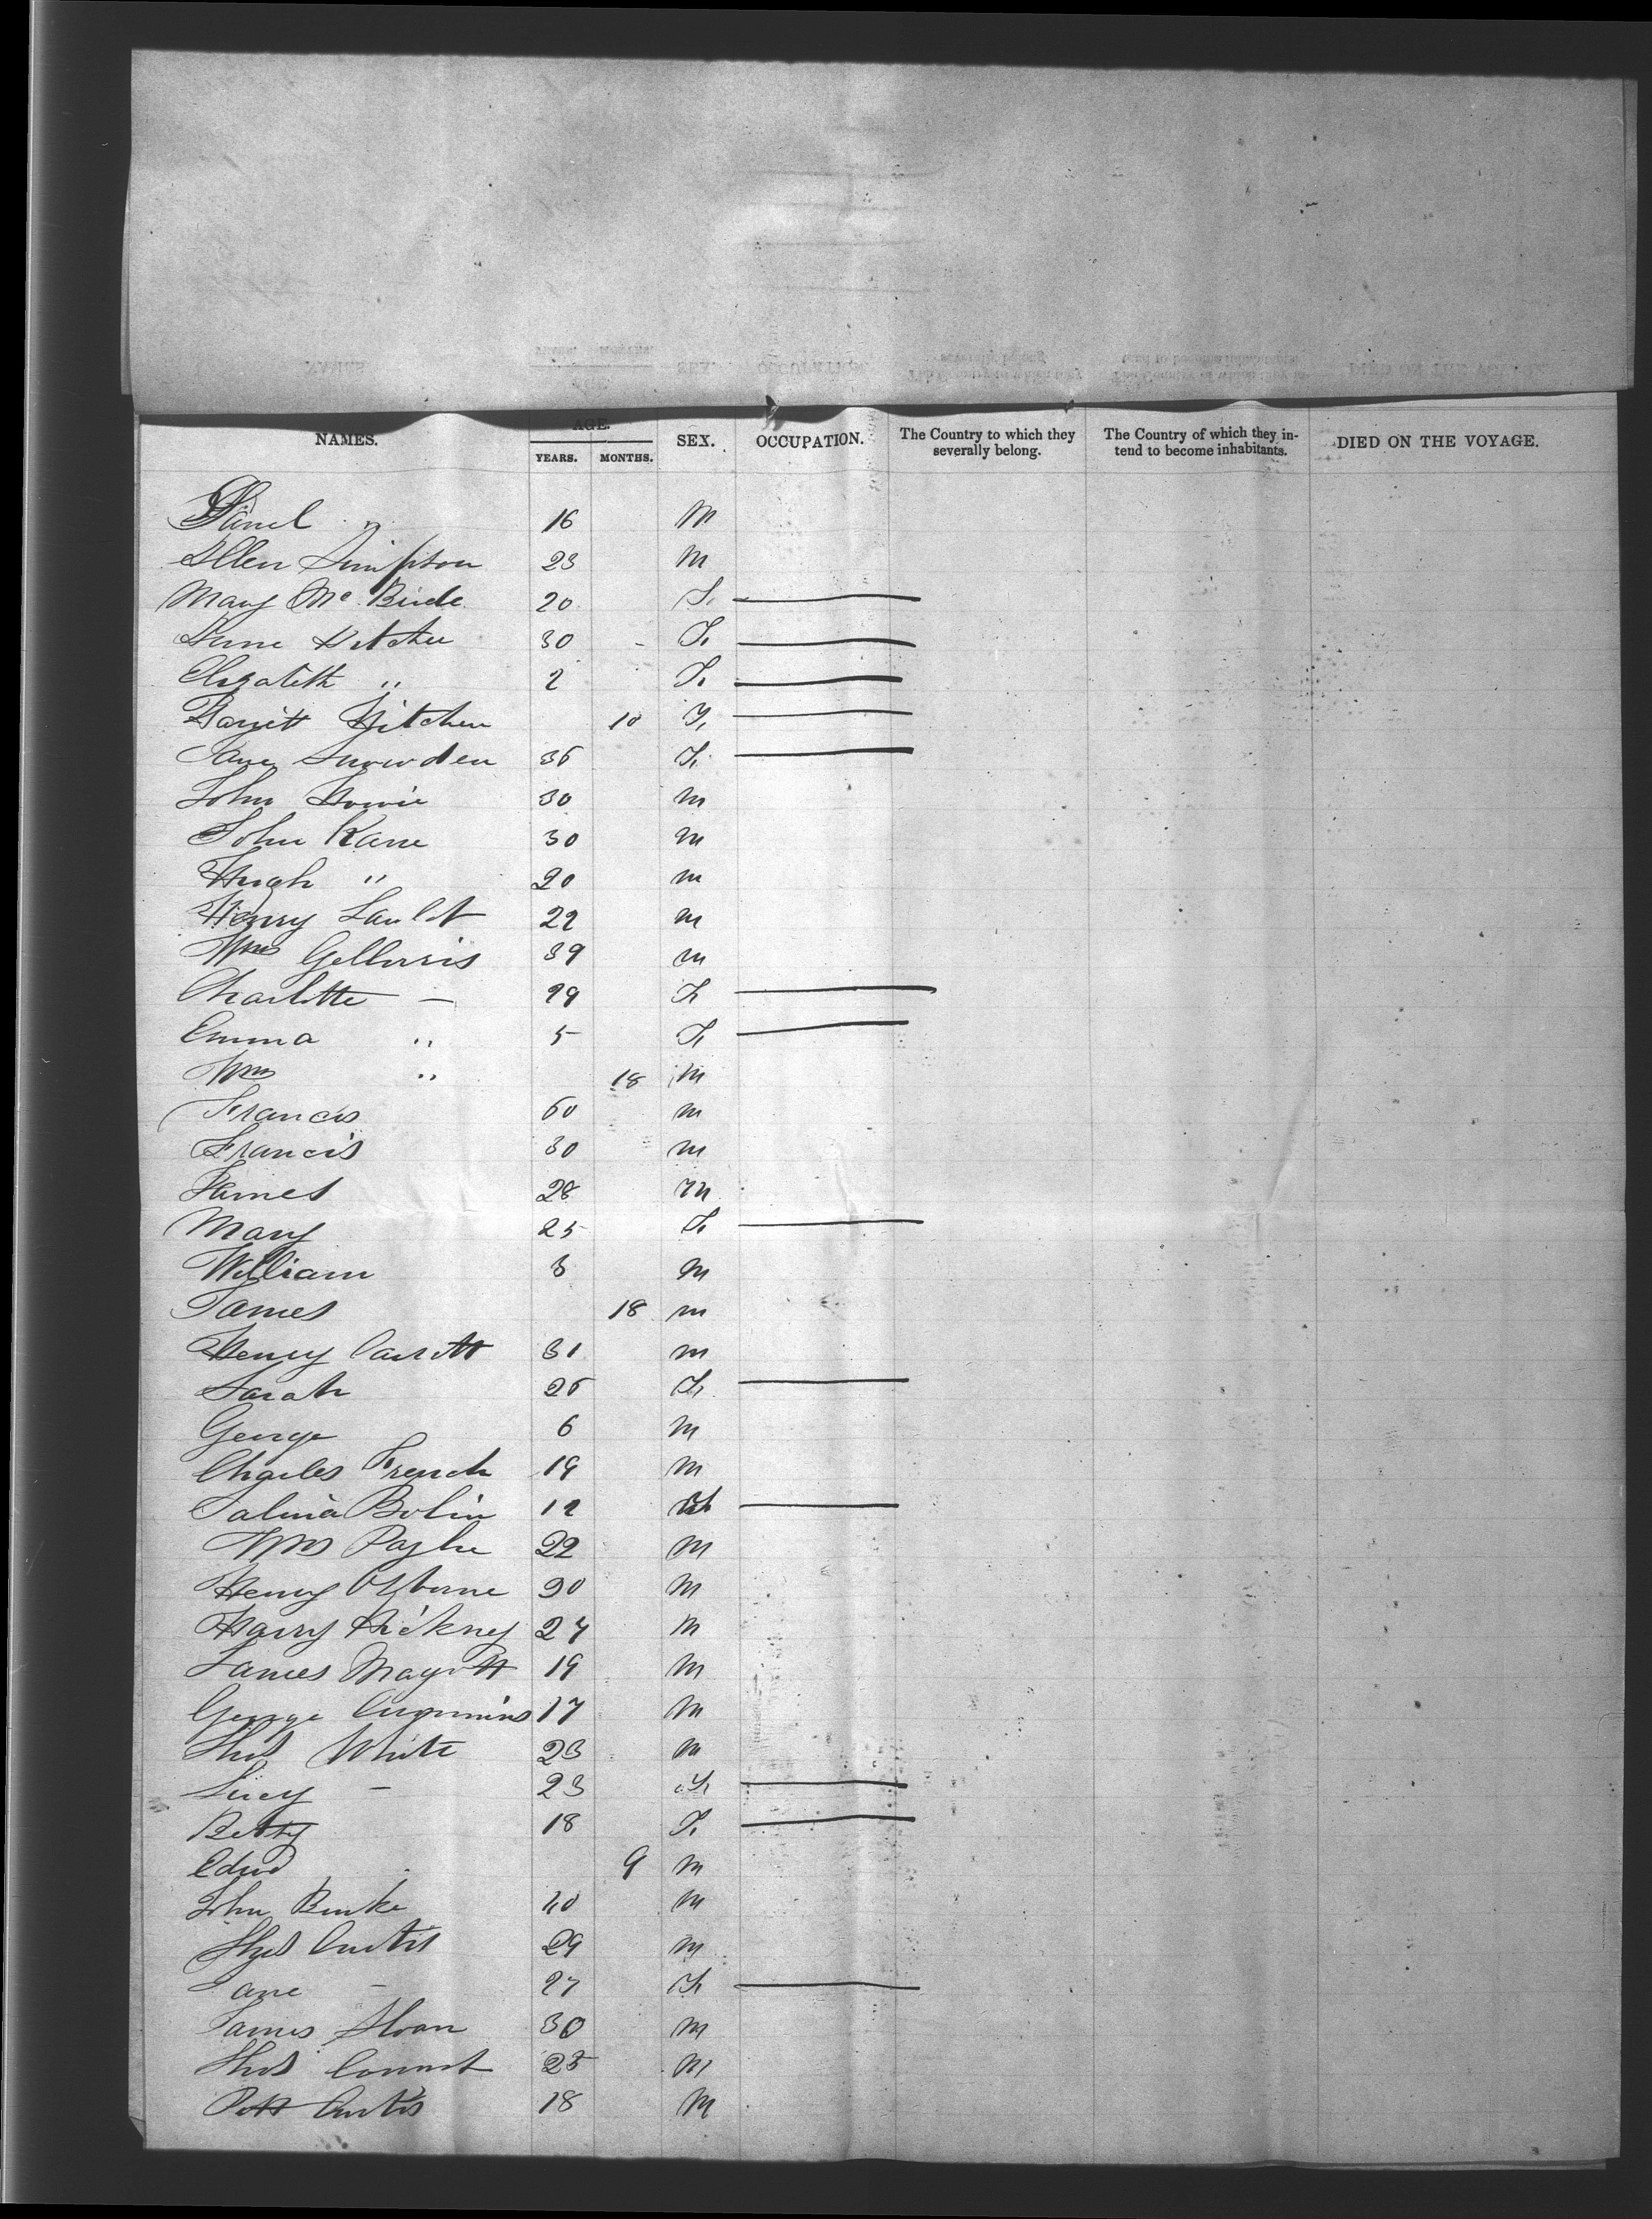 NAMES. AGE. SEX. OCCUPATION. The Country to which they severally belong. The Country of which they in-tend to become inhabitants. DIED ON THE VOYAGE.
YEARS. MONTHS.
16 M
Allen Simpson 23 M
Mary Mc Bride 20 F.
30 F.
Elizabeth " 2 F.
Kitchen 10 F.
Jane Snowden 36 F.
John Howie 30 M
John Kane 30 M
Hugh " 20 M
Henry 22 M
Wm 39 M
Charlotte — 29 F.
Emma " 5 F.
Wm " 18 M
Francis 60 M
Francis 30 M
James 28 M
Mary 25 F.
William 3 M
James 18 M
Henry 31 M
Sarah 26 F.
George 6 M
Charles French 19 M
Bolin 12
Wm 22 M
Henry Osborne M
Harry Hickney 27 M
James Mayott 19 M
George Cummins 17 M
Thos White 23 M
Lucy — 23 F.
Betty 18 F.
Edwd 9 M
John Burke M
Thos Curtis 29 M
Jane — 27 F.
James Sloan 30 M
Thos 25 M
Curtis 18 M